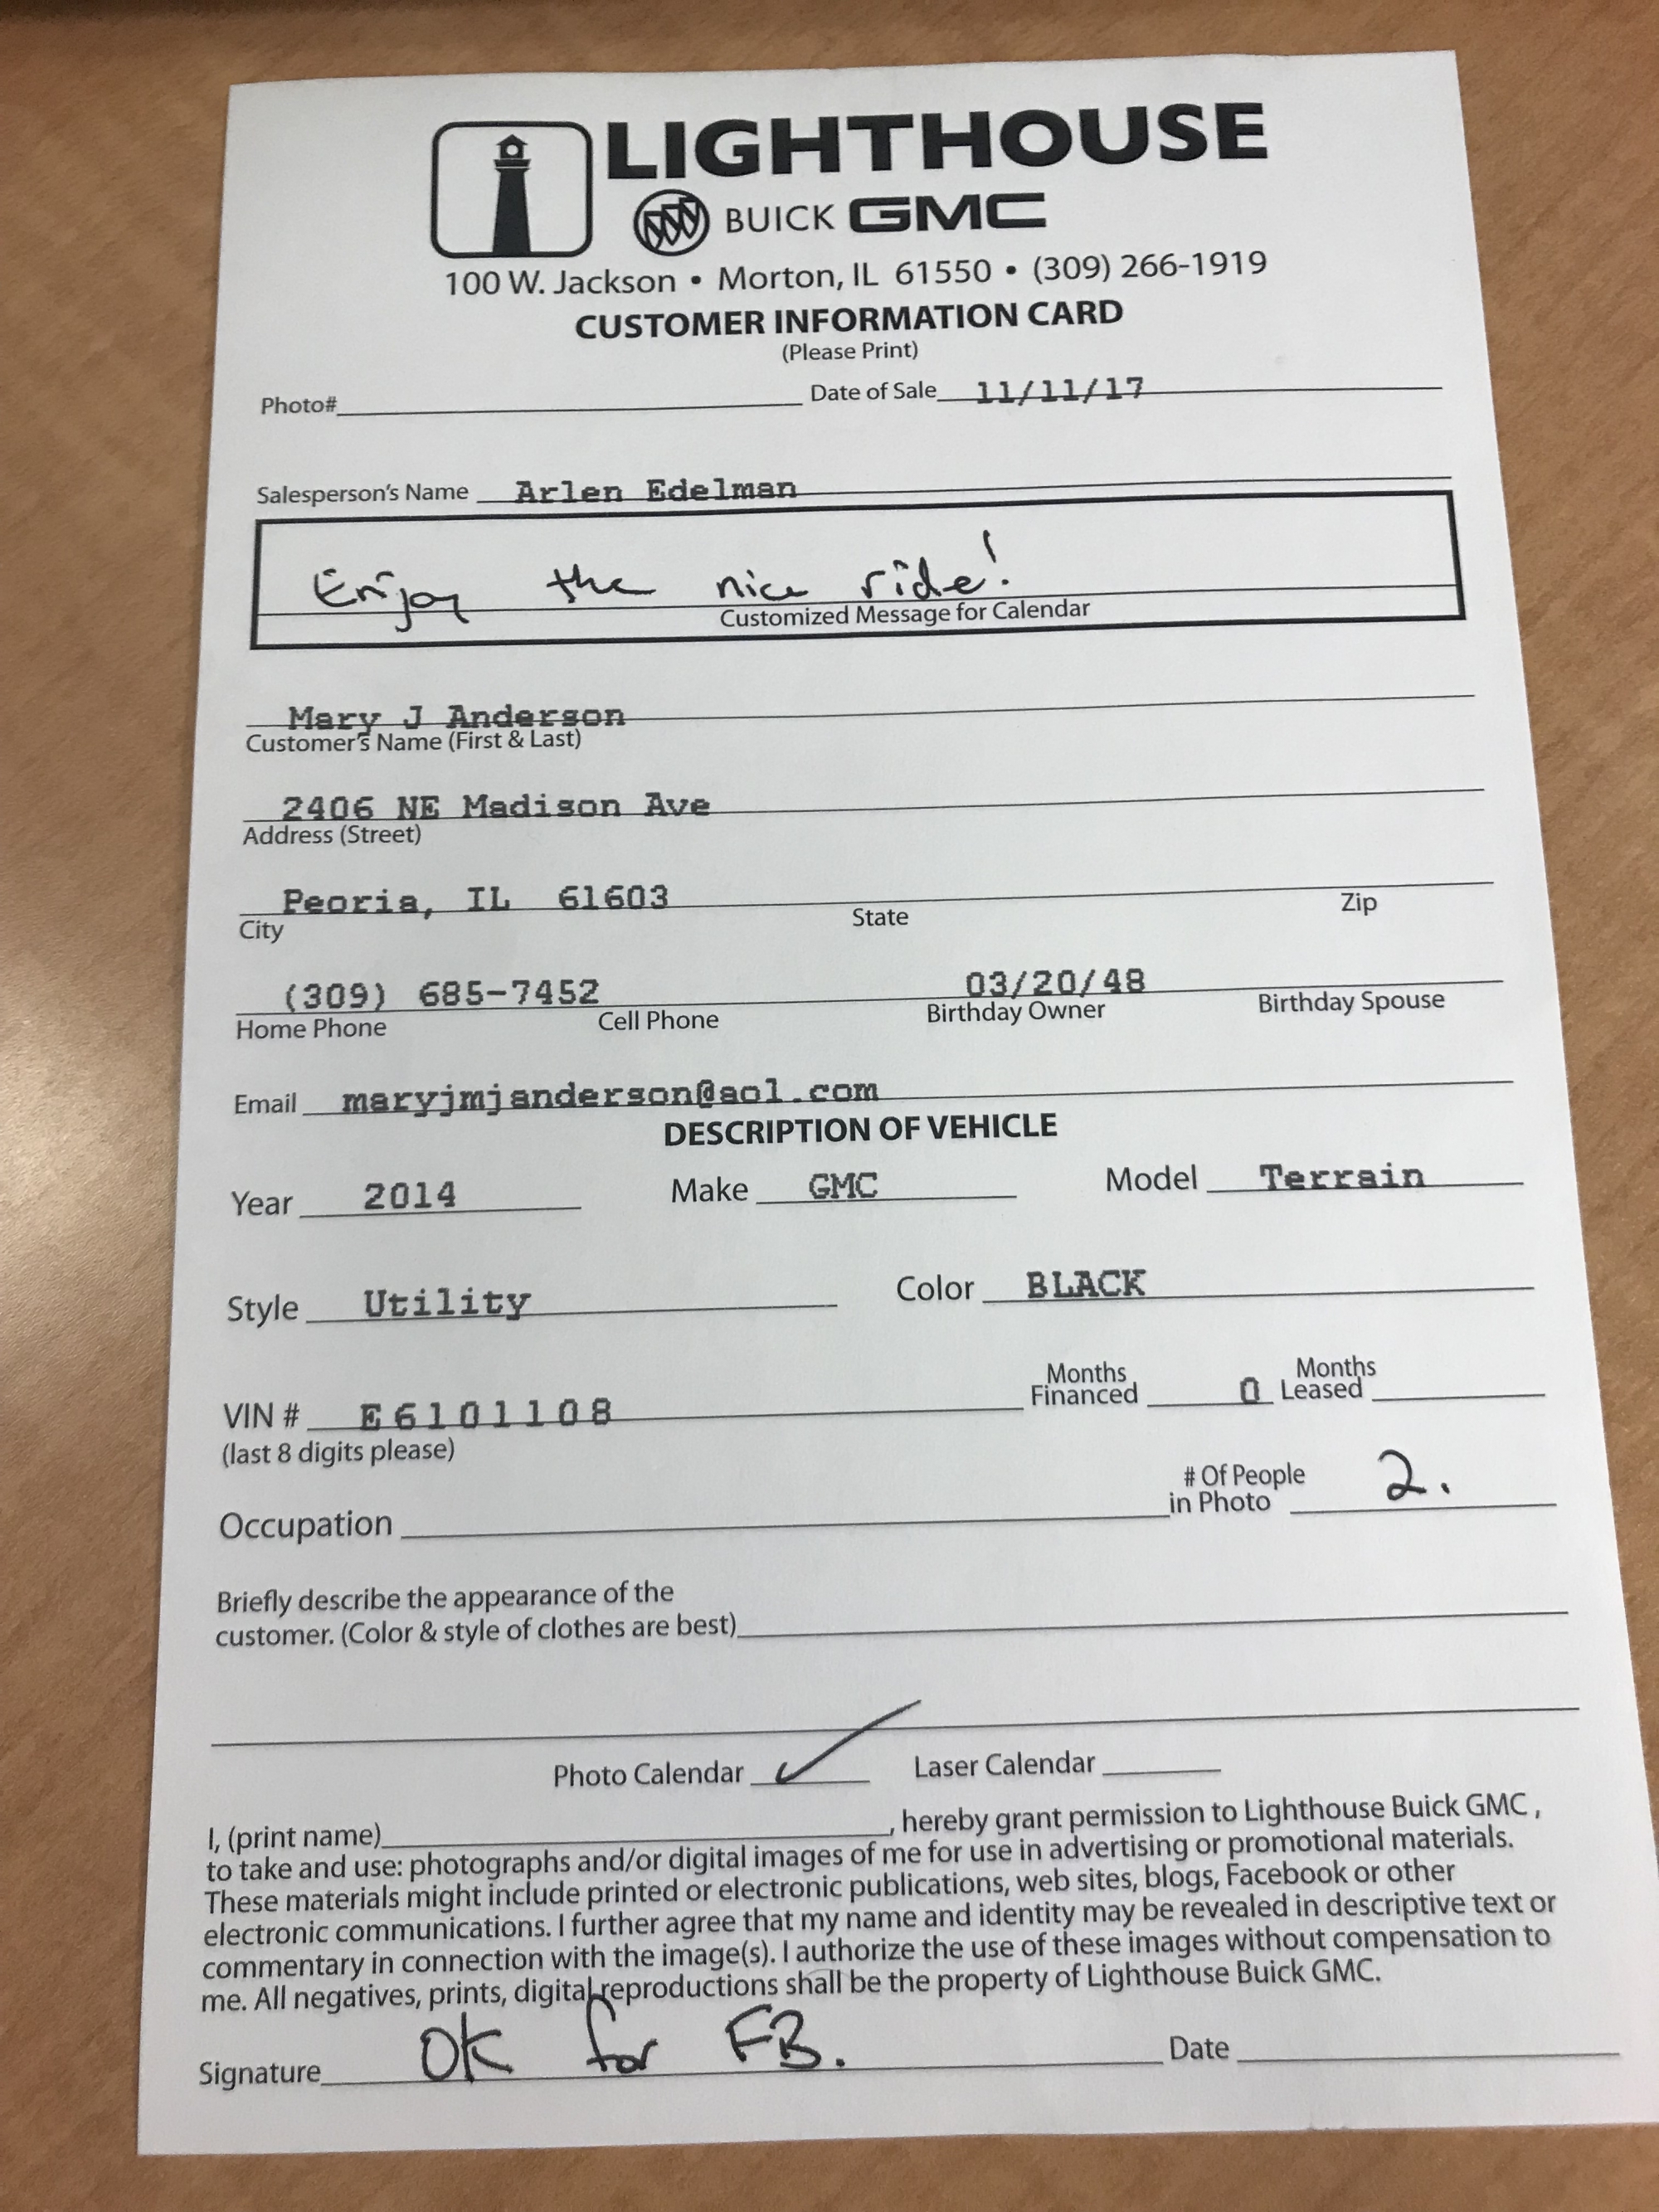 LIGHTHOUSE
BUICK GMC
100 W. Jackson • Morton, IL 61550 • (309) 266-1919
CUSTOMER INFORMATION CARD
(Please Print)
Photo# Date of Sale 11/11/17
Salesperson's Name Arlen Edelman
Enjoy the nice ride!
Customized Message for Calendar
Mary J Anderson
Customer's Name (First & Last)
2406 NE Madison Ave
Address (Street)
Peoria, IL 61603
City State Zip
(309) 685-7452 03/20/48
Home Phone Cell Phone Birthday Owner Birthday Spouse
Email maryjmjanderson@aol.com
DESCRIPTION OF VEHICLE
Year 2014 Make GMC Model Terrain
Style Utility Color BLACK
Months Months
VIN # E6101108 Financed 0 Leased
(last 8 digits please)
# Of People
Occupation in Photo 2.
Briefly describe the appearance of the
customer. (Color & style of clothes are best)
Photo Calendar ✓ Laser Calendar
I, (print name) , hereby grant permission to Lighthouse Buick GMC ,
to take and use: photographs and/or digital images of me for use in advertising or promotional materials.
These materials might include printed or electronic publications, web sites, blogs, Facebook or other
electronic communications. I further agree that my name and identity may be revealed in descriptive text or
commentary in connection with the image(s). I authorize the use of these images without compensation to
me. All negatives, prints, digital reproductions shall be the property of Lighthouse Buick GMC.
Signature OK for FB. Date